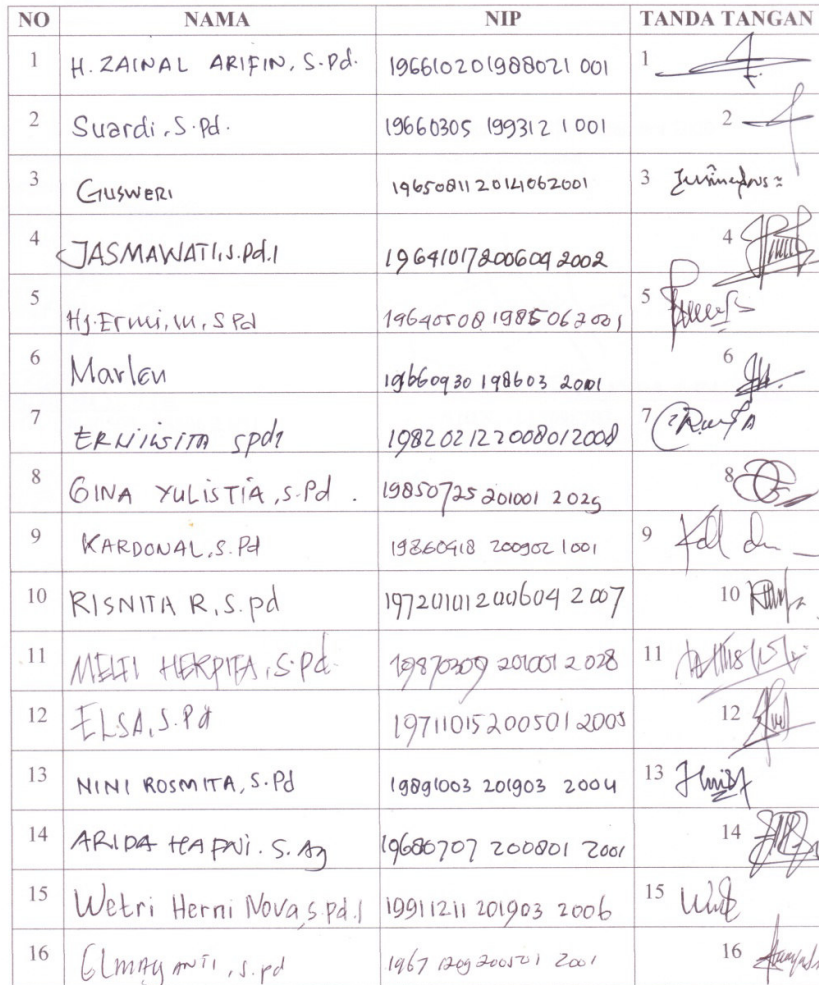 NO NAMA NIP TANDA TANGAN
1 H. ZAINAL ARIFIN, S.Pd. 196610201988021 001 1
2 Suardi, S.Pd. 19660305 199312 1 001 2
3 GUSWERI 196508112014062001 3
4 JASMAWATI, S.Pd.I 19641017200604 2002 4
5 Hj. Ermi, W, S Pd 19640508 198506 2001 5
6 Marlen 19660930 198603 2001 6
7 ERNIWSITA SpdI 198202122008012008 7
8 GINA YULISTIA, S.Pd. 19850725 201001 2025 8
9 KARDONAL, S.Pd 19860418 200902 1001 9
10 RISNITA R, S.pd 19720101200604 2007 10
11 MELTI HERPITA, S.Pd. 19870309 201001 2 028 11
12 ELSA, S.Pd 19711015200501 2005 12
13 NINI ROSMITA, S.Pd 19891003 201903 2004 13
14 ARIDA HAPNI. S.Ag 19680707 200801 2001 14
15 Wetri Herni Nova, S.Pd.I 19911211 201903 2006 15
16 ELMAYANTI, S.pd 1967 1209200501 2001 16